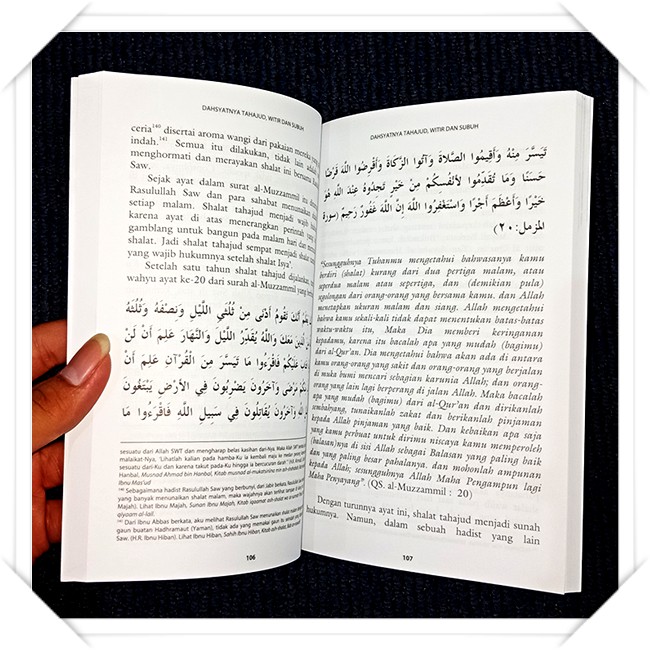 DAHSYATNYA TAHAJUD, WITIR DAN SUBUH
ceria140 disertai aroma wangi dari pakaian mereka yang
indah.141 Semua itu dilakukan, tidak lain adalah
menghormati dan merayakan shalat ini bersama
Saw.
Sejak ayat dalam surat al-Muzzammil itu
Rasulullah Saw dan para sahabat menunaikan
setiap malam. Shalat tahajud menjadi wajib
karena ayat di atas menerangkan perintah yang
gamblang untuk bangun pada malam hari dan
shalat. Jadi shalat tahajud sempat menjadi shalat
yang wajib hukumnya setelah shalat Isya'.
Setelah satu tahun shalat tahajud dijalankan,
wahyu ayat ke-20 dari surah al-Muzzammil yang
أَنَّكَ تَقُومُ أَدْنَى مِنْ ثُلُثَيِ اللَّيْلِ وَنِصْفَهُ وَثُلُثَهُ
الَّذِينَ مَعَكَ وَاللَّهُ يُقَدِّرُ اللَّيْلَ وَالنَّهَارَ عَلِمَ أَنْ لَنْ
عَلَيْكُمْ فَاقْرَءُوا مَا تَيَسَّرَ مِنَ الْقُرْآنِ عَلِمَ أَنْ
مَرْضَى وَآخَرُونَ يَضْرِبُونَ فِي الْأَرْضِ يَبْتَغُونَ
وَآخَرُونَ يُقَاتِلُونَ فِي سَبِيلِ اللَّهِ فَاقْرَءُوا مَا
sesuatu dari Allah SWT dan mengharap belas kasihan dari-Nya. Maka Allah SWT
malaikat-Nya, 'Lihatlah kalian pada hamba-Ku Ia kembali maju ke medan
sesuatu dari-Ku dan karena takut pada-Ku hingga ia bercucuran darah'." (H.R.
Hanbal, Musnad Ahmad bin Hanbal, Kitab
Ibnu Mas'ud
140 Sebagaimana hadist Rasulullah Saw yang berbunyi, dari Jabir berkata, Rasulullah
yang banyak menunaikan shalat malam, maka wajahnya akan terlihat
Majah). Lihat Ibnu Majah, Sunan Ibnu Majah, Kitab
qiyaam al-lail.
141 Dari Ibnu Abbas berkata, aku melihat Rasulullah Saw menunaikan shalat
gaun buatan Hadhramaut (Yaman), tidak ada yang memakai gaun itu
Saw. (H.R. Ibnu Hiban). Lihat Ibnu Hiban, Sahih Ibnu Hiban, Kitab
106
DAHSYATNYA TAHAJUD, WITIR DAN SUBUH
تَيَسَّرَ مِنْهُ وَأَقِيمُوا الصَّلَاةَ وَآتُوا الزَّكَاةَ وَأَقْرِضُوا اللَّهَ قَرْضًا
حَسَنًا وَمَا تُقَدِّمُوا لِأَنْفُسِكُمْ مِنْ خَيْرٍ تَجِدُوهُ عِنْدَ اللَّهِ هُوَ
خَيْرًا وَأَعْظَمَ أَجْرًا وَاسْتَغْفِرُوا اللَّهَ إِنَّ اللَّهَ غَفُورٌ رَحِيمٌ (سورة
المزمل: ٢٠)
"Sesungguhnya Tuhanmu mengetahui bahwasanya kamu
berdiri (shalat) kurang dari dua pertiga malam, atau
seperdua malam atau sepertiga, dan (demikian pula)
segolongan dari orang-orang yang bersama kamu. dan Allah
menetapkan ukuran malam dan siang. Allah mengetahui
bahwa kamu sekali-kali tidak dapat menentukan batas-batas
waktu-waktu itu, Maka Dia memberi keringanan
kepadamu, karena itu bacalah apa yang mudah (bagimu)
dari al-Qur'an. Dia mengetahui bahwa akan ada di antara
kamu orang-orang yang sakit dan orang-orang yang berjalan
di muka bumi mencari sebagian karunia Allah; dan orang-
orang yang lain lagi berperang di jalan Allah. Maka bacalah
apa yang mudah (bagimu) dari al-Qur'an dan dirikanlah
sembahyang, tunaikanlah zakat dan berikanlah pinjaman
kepada Allah pinjaman yang baik. Dan kebaikan apa saja
yang kamu perbuat untuk dirimu niscaya kamu memperoleh
(balasan)nya di sisi Allah sebagai Balasan yang paling baik
dan yang paling besar pahalanya. dan mohonlah ampunan
kepada Allah; sesungguhnya Allah Maha Pengampun lagi
Maha Penyayang". (QS. al-Muzzammil : 20)
Dengan turunnya ayat ini, shalat tahajud menjadi sunah
hukumnya. Namun, dalam sebuah hadist yang lain
107